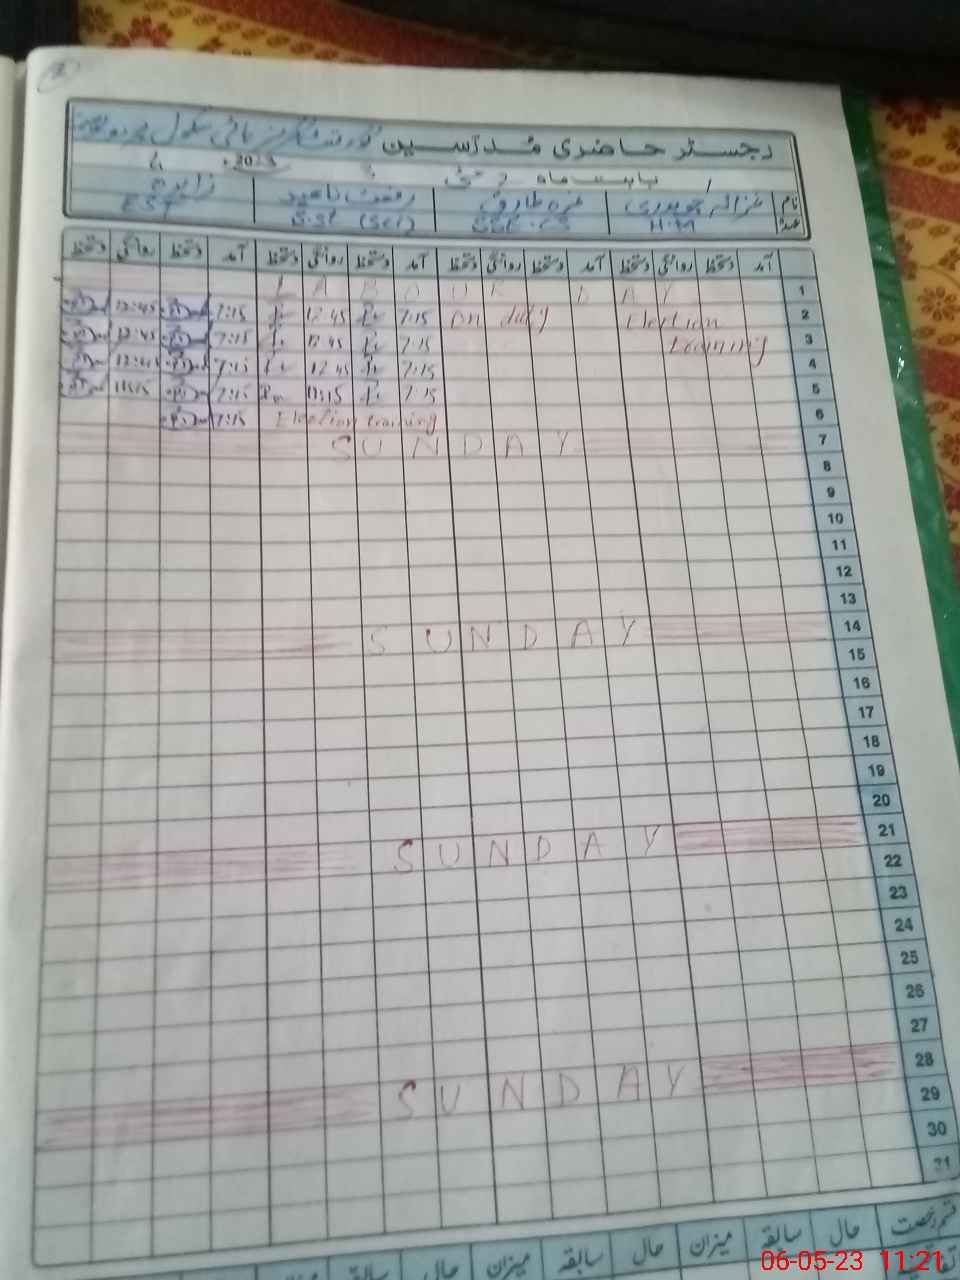 رجسٹر حاضری مدرسین گورنمنٹ گرلز ہائی سکول
بابت ماہ مئی 2023ء
نام غزالہ چوہدری عمرہ طارق رفعت ناہید زاہرہ
عہدہ H.M SSE-CS S.St (Sci) EST
آمد دستخط روانگی دستخط آمد دستخط روانگی دستخط آمد دستخط روانگی دستخط آمد دستخط روانگی دستخط
1 LABOUR DAY
2 Election on duty 7:15 12:45 7:15 12:45
3 training 7:15 12:45 7:15 12:45
4 7:15 12:45 7:15 12:45
5 7:15 11:15 7:15 11:15
6 Election training 7:15
7 SUNDAY
8
9
10
11
12
13
14 SUNDAY
15
16
17
18
19
20
21 SUNDAY
22
23
24
25
26
27
28 SUNDAY
29
30
31
قسم رخصت حال سابقہ میزان حال سابقہ میزان حال سابقہ
06-05-23 11:21